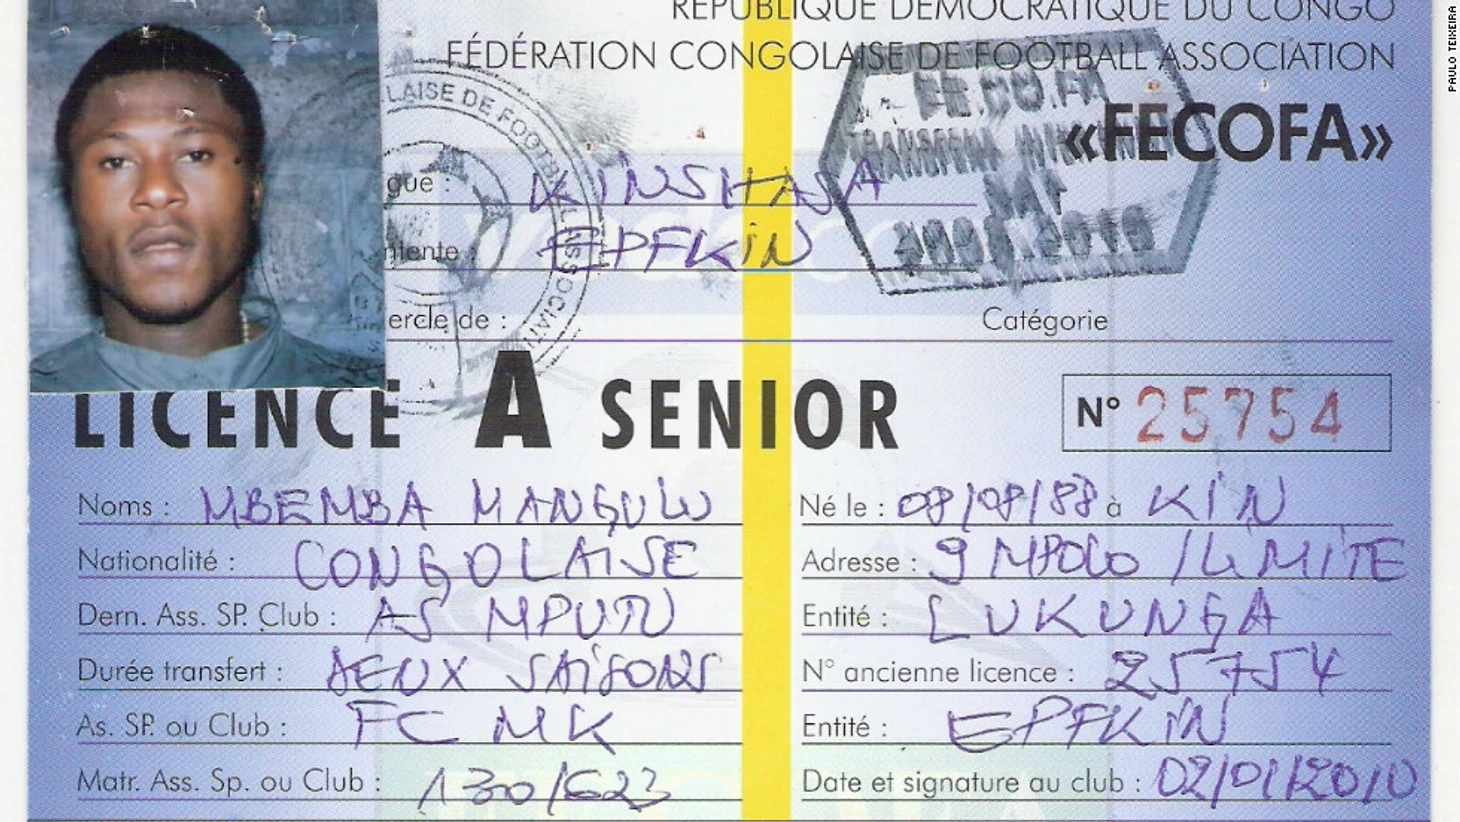 RÉPUBLIQUE DÉMOCRATIQUE DU CONGO
FÉDÉRATION CONGOLAISE DE FOOTBALL ASSOCIATION
PAULO TEIXEIRA
«FECOFA»
FE.CO.FA
LAISE DE FOOTBALL ASSOCIATI
gue : KINSHASA
ntente : EPFKIN
ercle de :
Catégorie
LICENCE A SENIOR
N° 25754
Noms : MBEMBA MANGULU
Né le : 08/08/88 à KIN
Nationalité : CONGOLAISE
Adresse : 9 MPOLO / LIMITE
Dern. Ass. SP. Club : AS MPUTU
Entité : LUKUNGA
Durée transfert : DEUX SAISONS
N° ancienne licence : 25754
As. SP. ou Club : FC MK
Entité : EPFKIN
Matr. Ass. Sp. ou Club : 130/623
Date et signature au club : 02/01/2010